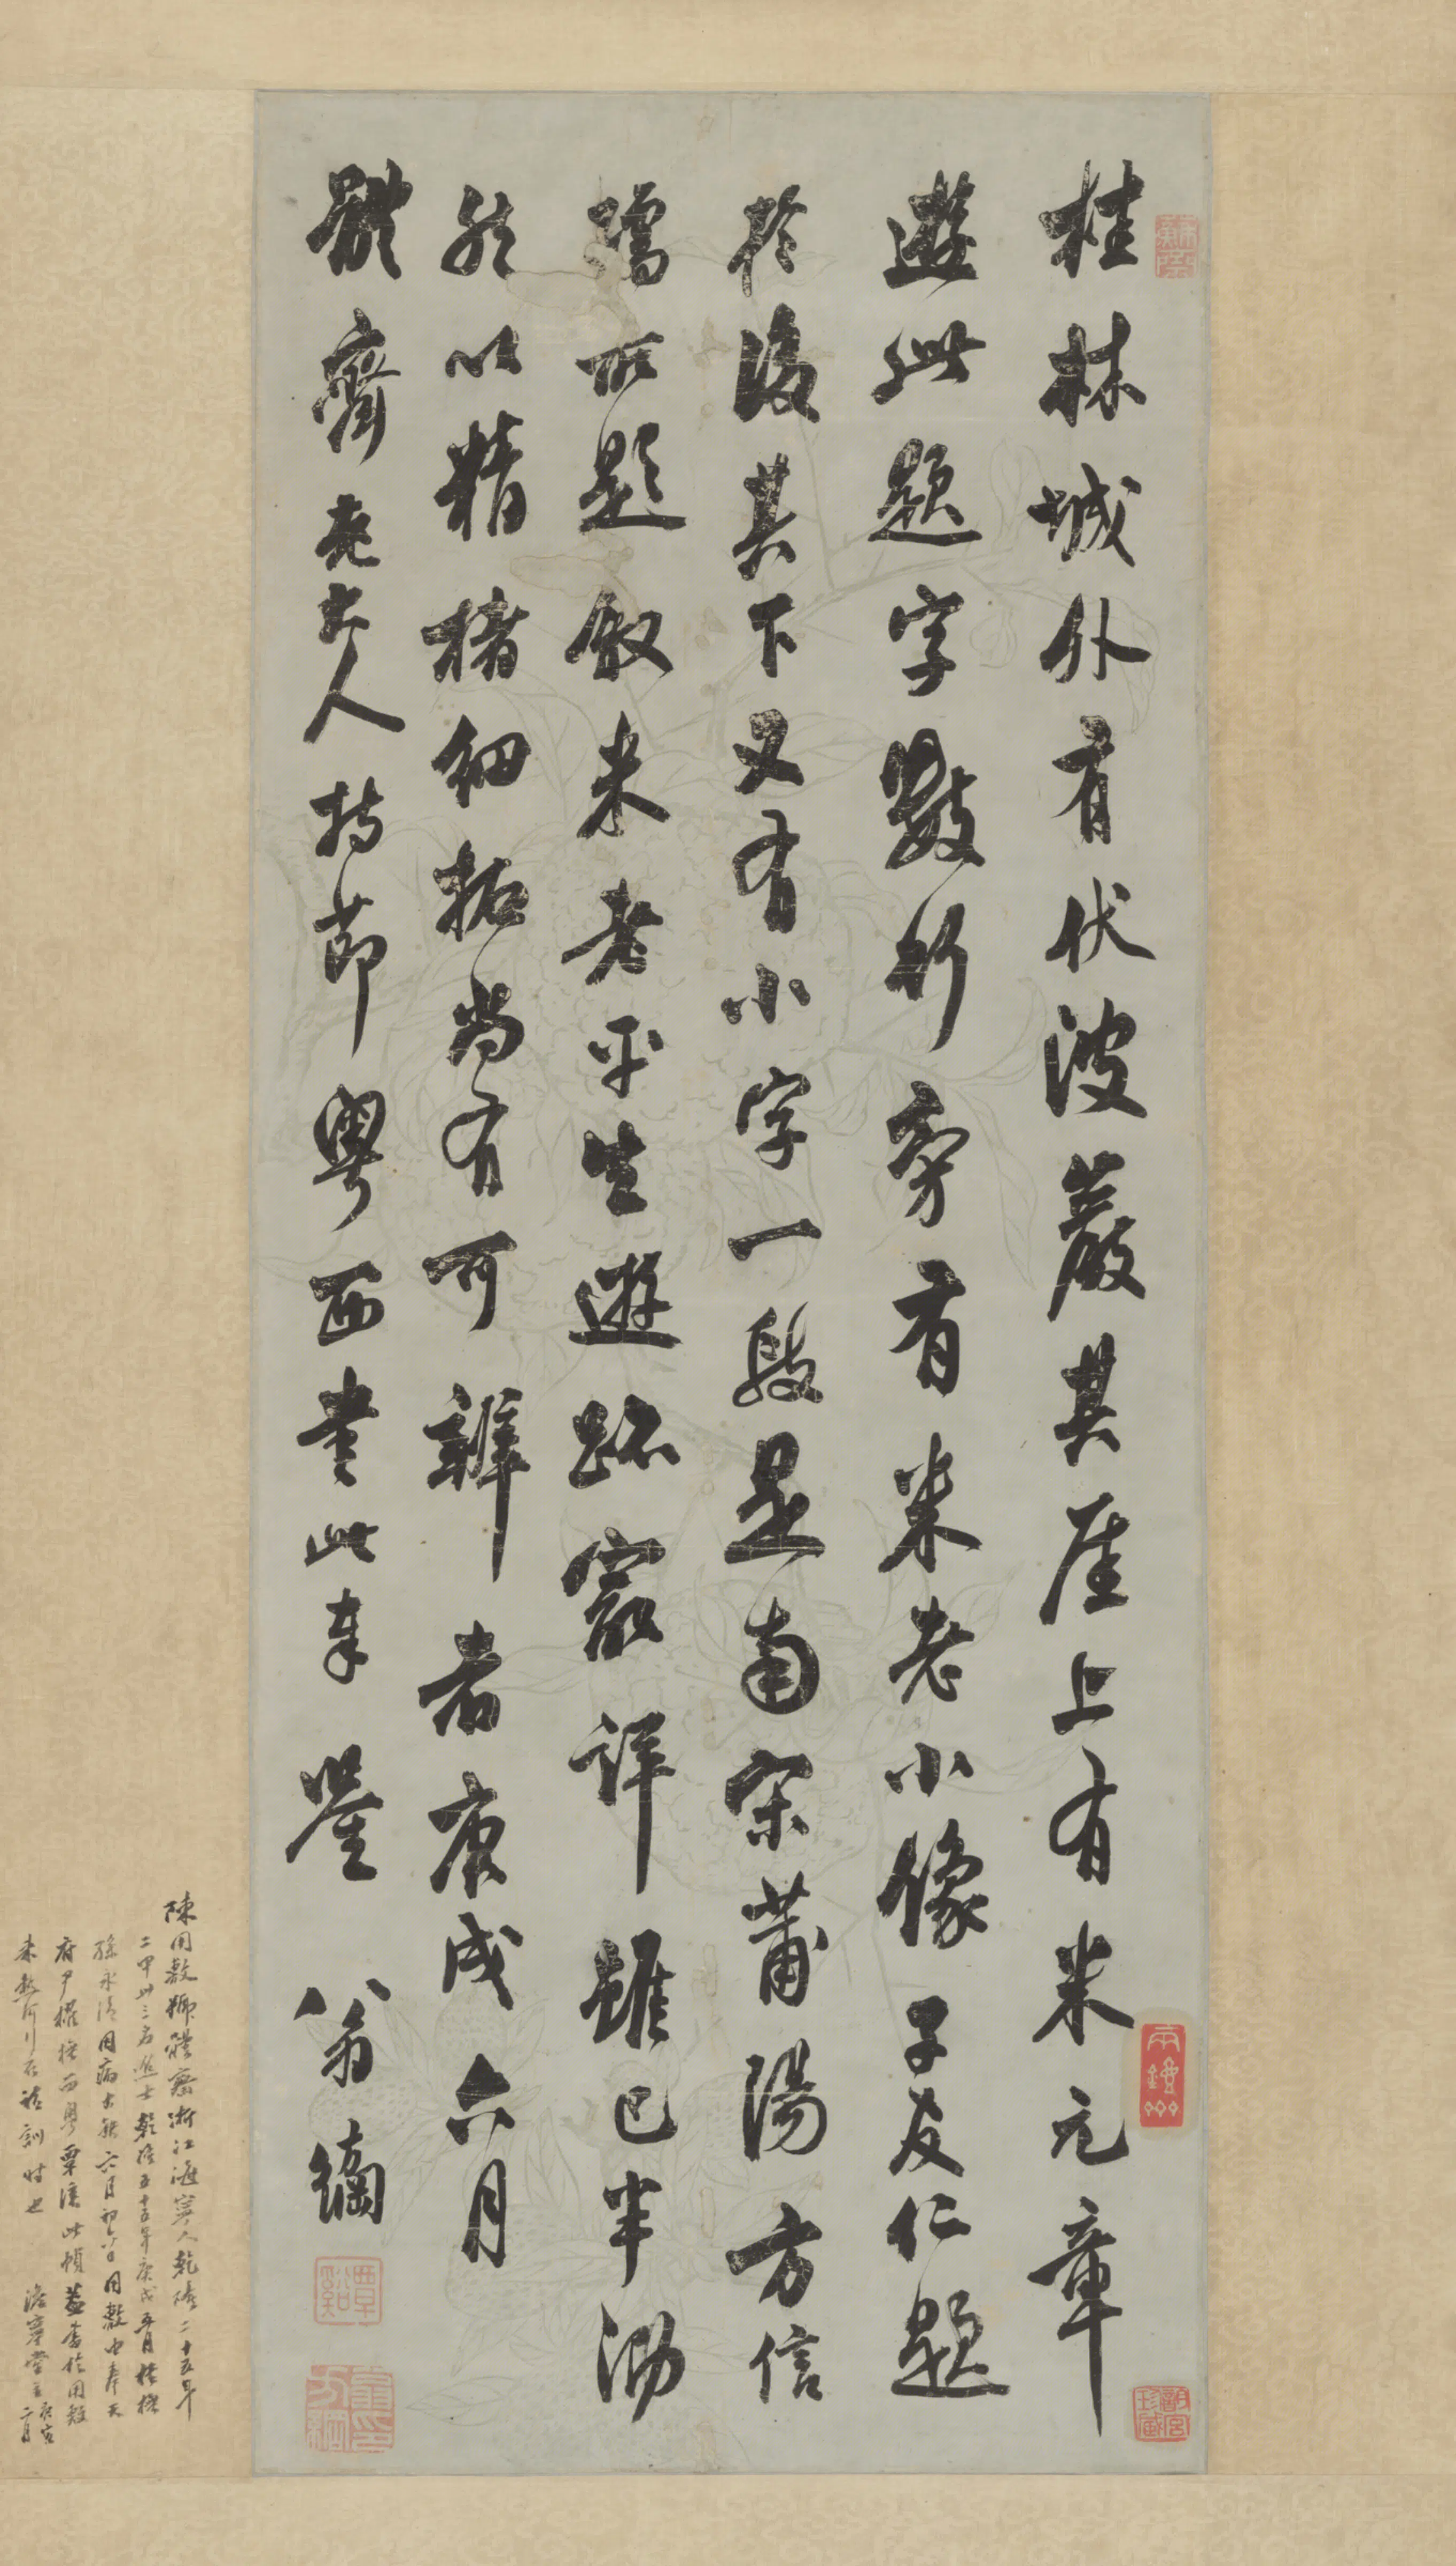 桂林城外有伏波巖其厓上有米元章
遊此題字數行旁有米老小像子友仁題
於後其下又有小字一段是南宋莆陽方信
孺所題敘米老平生遊跡寂詳雖已半泐
然以精楮細拓尚有可辨者庚戌六月
體齋老大人持節粵西書此奉鑒 翁方綱
覃谿
翁方綱印
陳用敷號體齋浙江海寧人乾隆二十五年
二甲卅三名進士乾隆五十五年庚戌五月桂撫
孫永清因病去任六月初六日用敷由奉天
府尹擢撫西粵覃溪此幀蓋書於用敷
未赴行在請訓時也 主庚寅二月